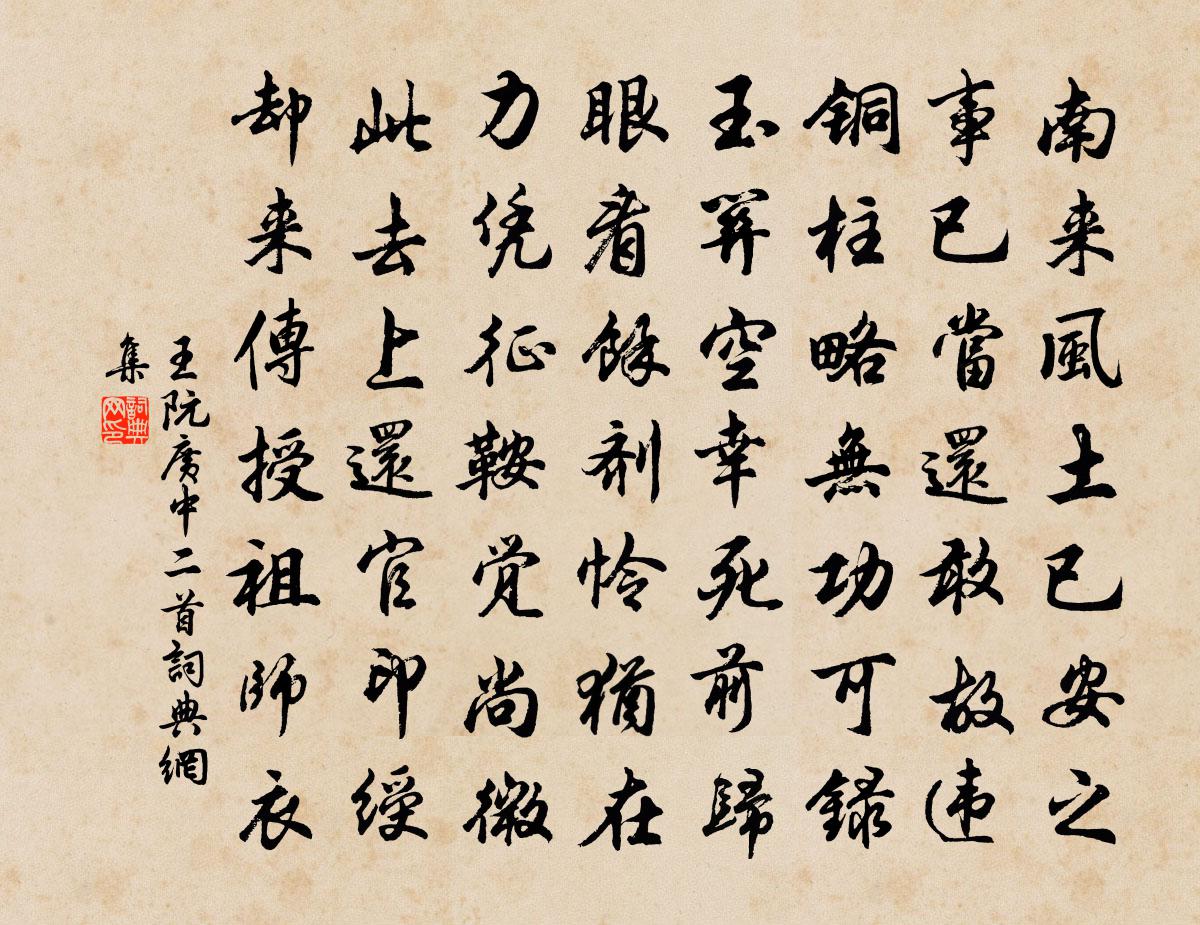 南来風土已安之
事已當還敢故违
銅柱略無功可録
玉關空幸死前歸
眼看餘剂怜猶在
力凭征鞍觉尚微
此去上還官印綬
却来傳授祖師衣
王阮廣中二首詞典網
集
詞典
网印